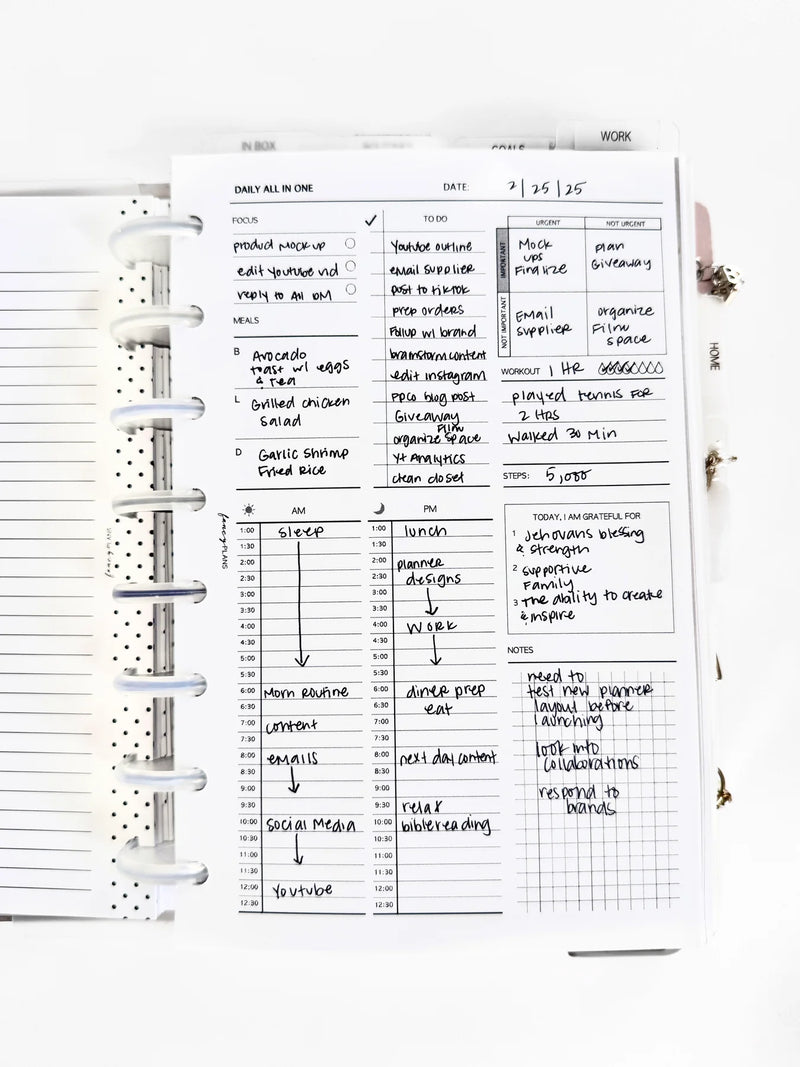 IN BOX
GOALS
WORK
DAILY ALL IN ONE
DATE: 2/25/25
FOCUS
product mock up
edit Youtube vid
reply to all DM
MEALS
B Avocado
toast w/ eggs
& tea
L Grilled chicken
Salad
D Garlic Shrimp
Fried Rice
TO DO
Youtube outline
email supplier
post to tiktok
prep orders
follup w/ brand
brainstorm content
edit instagram
PPCO blog post
Giveaway
organize Film space
YT Analytics
clean closet
URGENT
NOT URGENT
IMPORTANT
Mock
ups
Finalize
plan
Giveaway
NOT IMPORTANT
EMail
supplier
organize
Film
space
WORKOUT 1 HR
played tennis FOR
2 HRS
Walked 30 Min
STEPS: 5,000
HOME
fancyPLANS
AM
1:00 sleep
1:30
2:00
2:30
3:00
3:30
4:00
4:30
5:00
5:30
6:00 Morn Routine
6:30
7:00 content
7:30
8:00 emails
8:30
9:00
9:30
10:00 Social Media
10:30
11:00
11:30
12:00 Youtube
12:30
PM
1:00 lunch
1:30
2:00 planner
2:30 designs
3:00
3:30
4:00 WORK
4:30
5:00
5:30
6:00 diner prep
6:30 eat
7:00
7:30
8:00 next day content
8:30
9:00
9:30 relax
10:00 bible reading
10:30
11:00
11:30
12:00
12:30
TODAY, I AM GRATEFUL FOR
1 Jehovahs blessing
& strength
2 supportive
Family
3 The ability to create
& inspire
NOTES
need to
test new planner
layout before
launching
look into
collaborations
respond to
brands